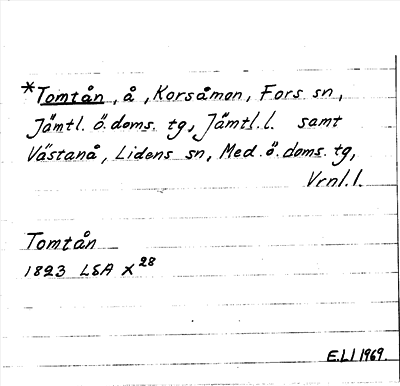 *Tomtån, å, Korsåmon, Fors sn,
Jämtl. ö. doms. tg, Jämtl. l. samt
Västanå, Lidens sn, Med. ö. doms. tg,
Vrnl. l.
Tomtån
1823 LSA X28
E.L! 1969.